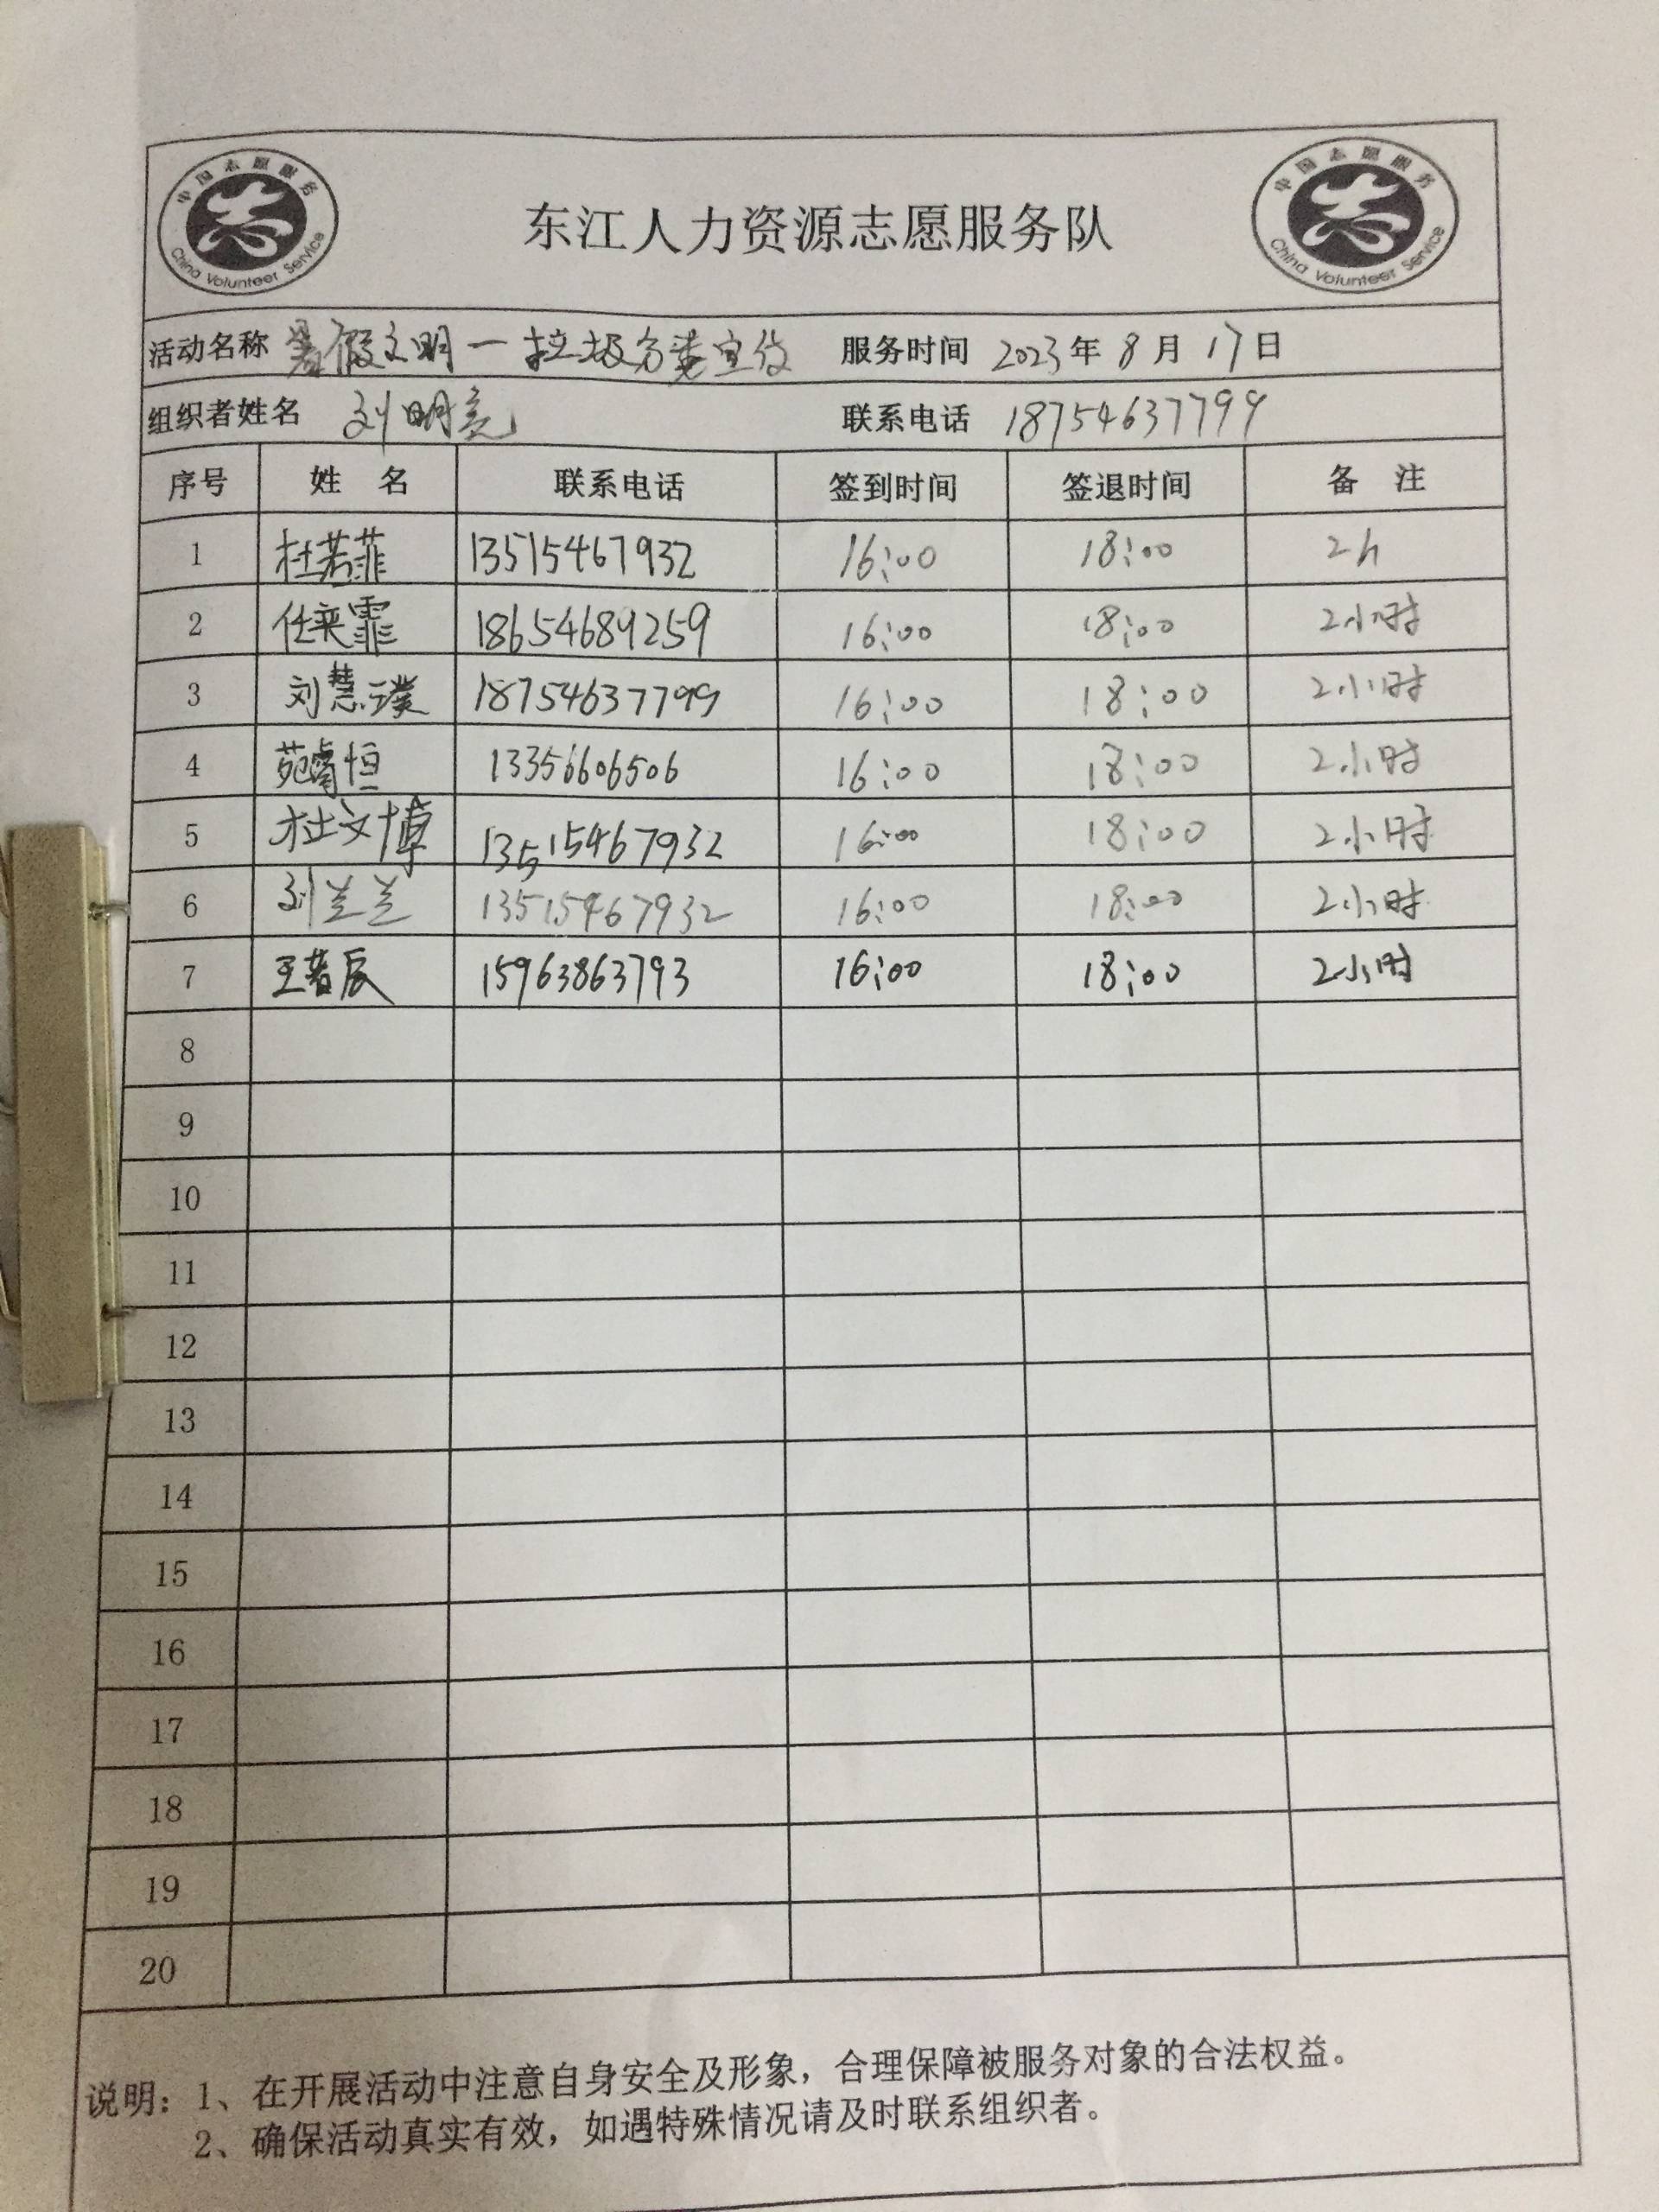 中国志愿服务
China Volunteer Service
东江人力资源志愿服务队
中国志愿服务
China Volunteer Service
活动名称 暑假文明一垃圾分类宣传 服务时间 2023年8月17日
组织者姓名 刘明亮 联系电话 18754637799
序号 姓名 联系电话 签到时间 签退时间 备注
1 杜若菲 13515467932 16:00 18:00 2h
2 任奕霏 18654689259 16:00 18:00 2小时
3 刘慧璞 18754637799 16:00 18:00 2小时
4 苑睿恒 13356606506 16:00 18:00 2小时
5 杜文博 13515467932 16:00 18:00 2小时
6 刘兰兰 13515467932 16:00 18:00 2小时
7 王若辰 15963863793 16:00 18:00 2小时
8
9
10
11
12
13
14
15
16
17
18
19
20
说明：1、在开展活动中注意自身安全及形象，合理保障被服务对象的合法权益。
2、确保活动真实有效，如遇特殊情况请及时联系组织者。